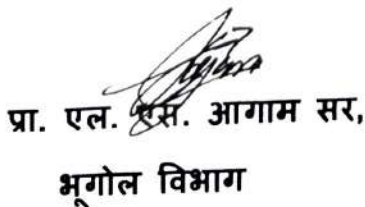 प्रा. एल. एस. आगाम सर,
भूगोल विभाग